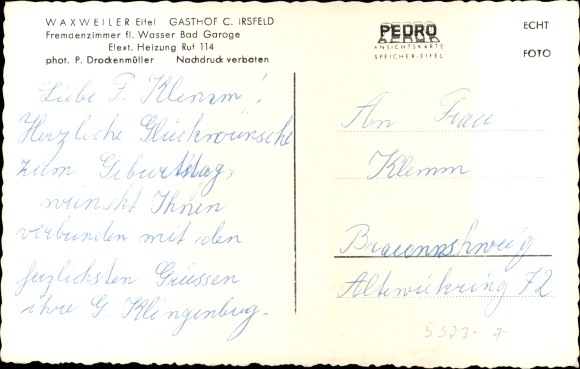 WAXWEILER Eifel GASTHOF C. IRSFELD
Fremdenzimmer fl. Wasser Bad Garage
Elext. Heizung Ruf 114
phot. P. Drockenmüller Nachdruck verboten
PEDRO
ANSICHTSKARTE
SPEICHER-EIFEL
ECHT
FOTO
Liebe F. Klemm!
Herzliche Glückwünsche
zum Geburtstag,
wünscht Ihnen
verbunden mit den
herzlichsten Grüssen
ihre G Klingenburg.
An Frau
Klemm
Braunschweig
Altewiekring 72
5523-7